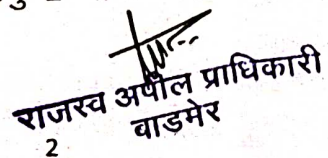 राजस्व अपील प्राधिकारी
बाडमेर
2